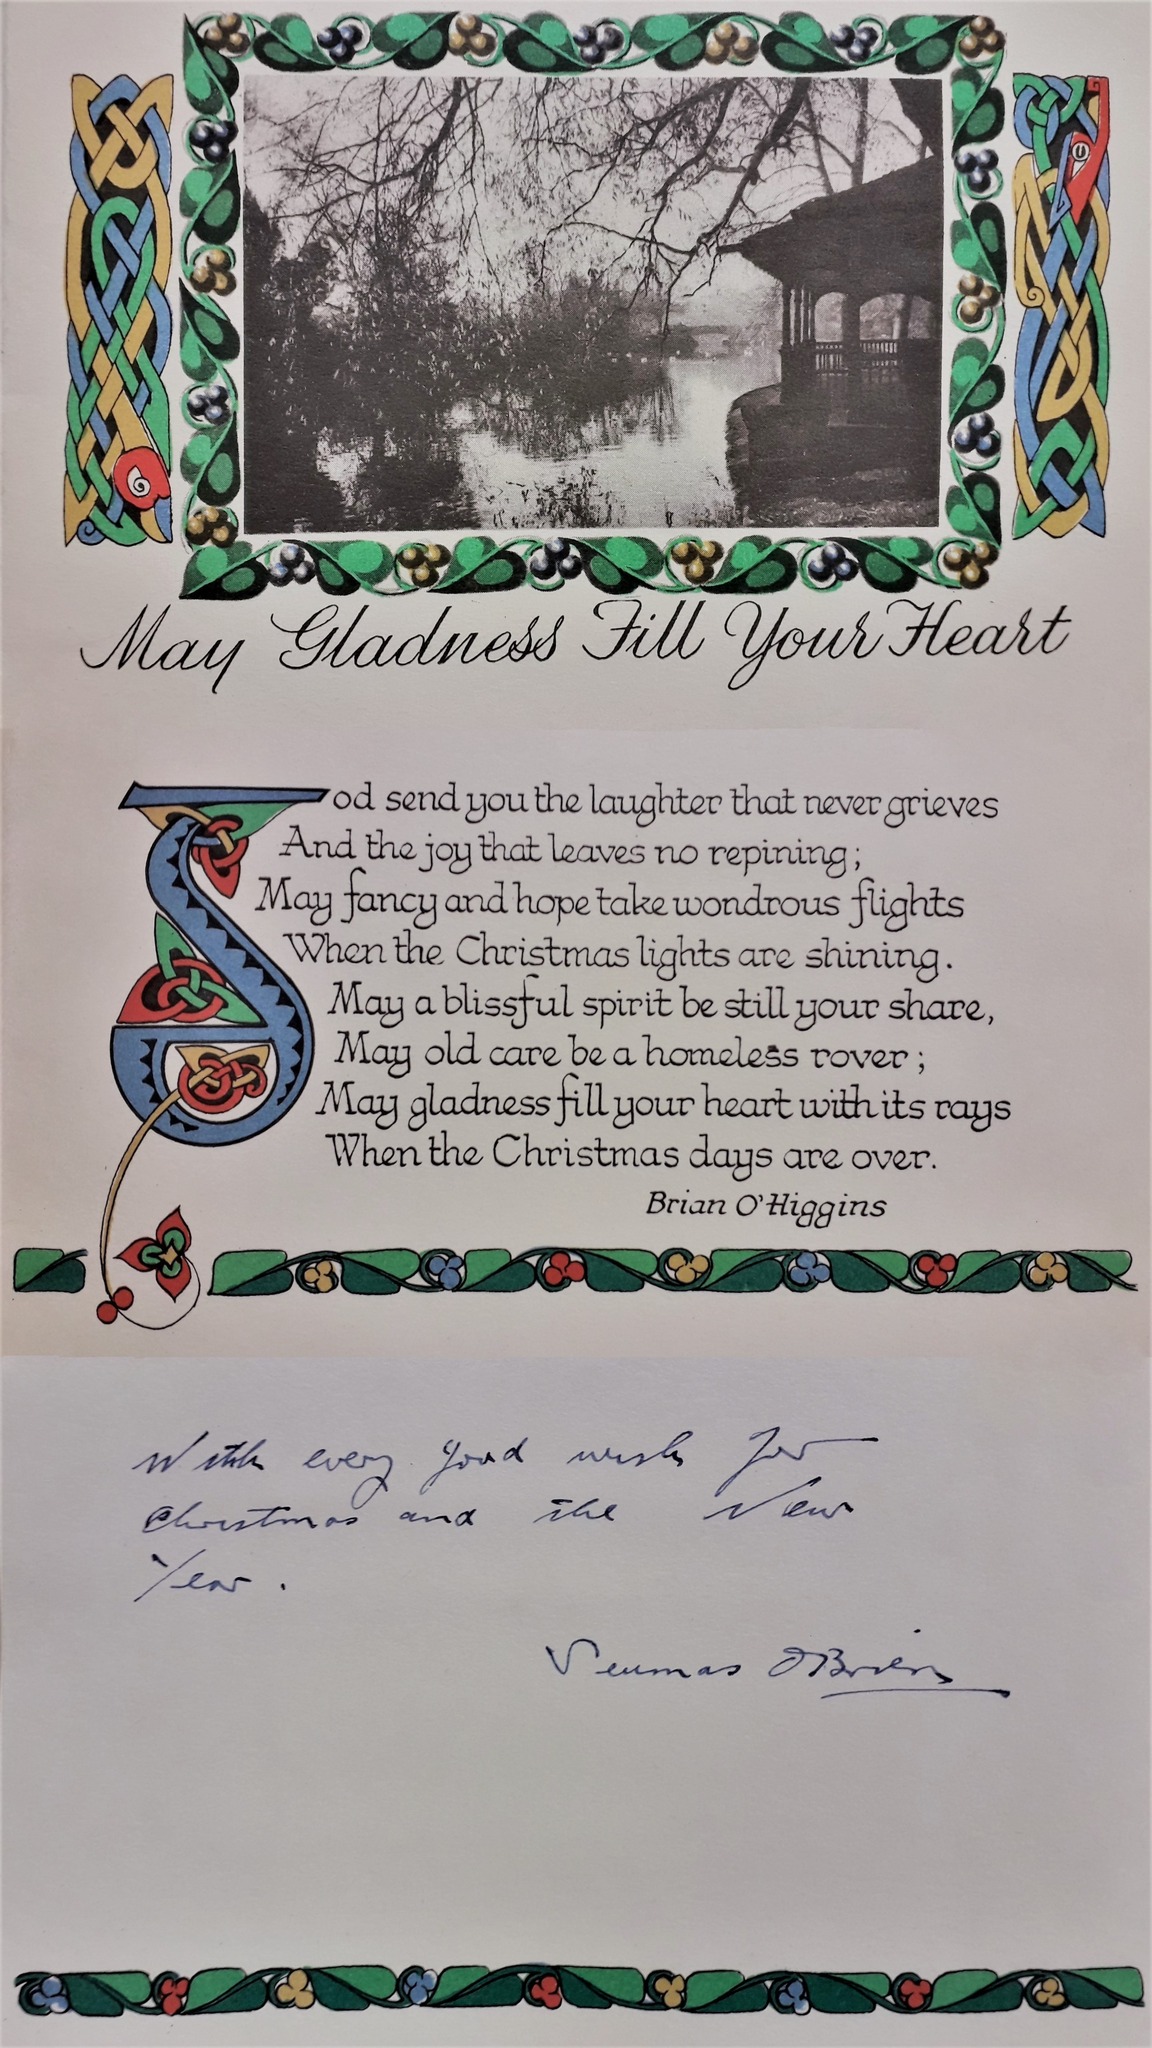 May Gladness Fill Your Heart
God send you the laughter that never grieves
And the joy that leaves no repining;
May fancy and hope take wondrous flights
When the Christmas lights are shining.
May a blissful spirit be still your share,
May old care be a homeless rover;
May gladness fill your heart with its rays
When the Christmas days are over.
Brian O'Higgins
With every good wish for
Christmas and the New
Year.
Seumas O'Brien